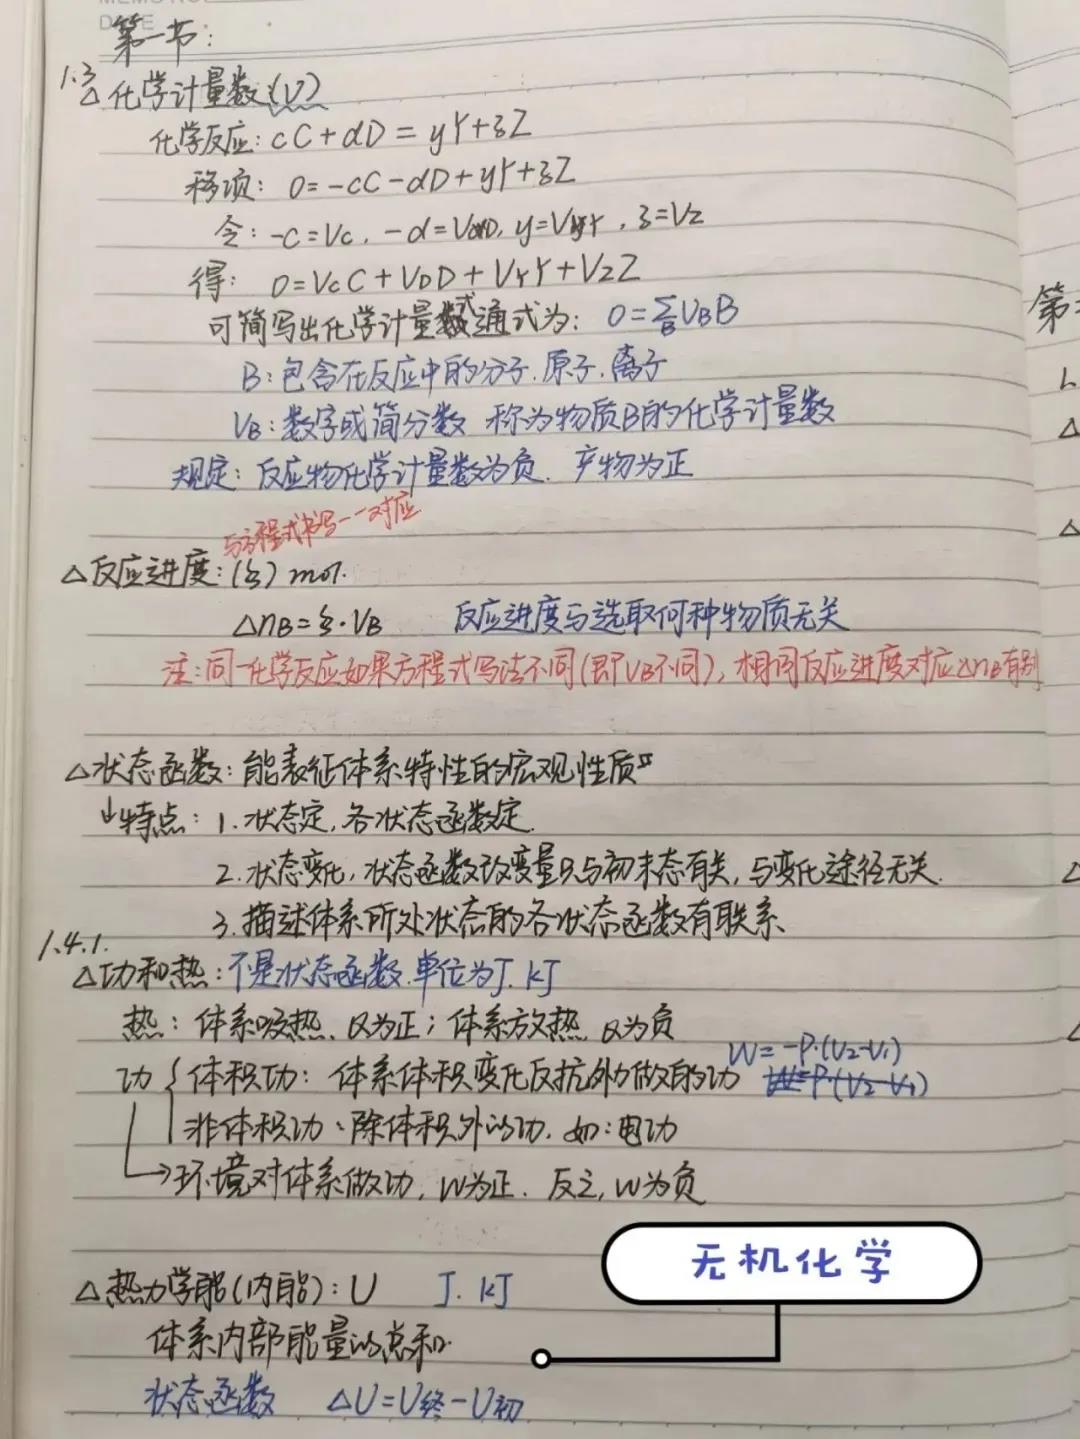 第一节：
1.3
△化学计量数(ν)
化学反应：cC+dD=yY+zZ
移项：0=-cC-dD+yY+zZ
令：-c=νc，-d=νD，y=νY，z=νZ
得：0=νcC+νDD+νYY+νZZ
可简写出化学计量式通式为：0=∑BνBB
B：包含在反应中的分子.原子.离子
νB：数字或简分数 称为物质B的化学计量数
规定：反应物化学计量数为负.产物为正
与方程式书写一一对应
△反应进度：(ξ) mol.
△nB=ξ·νB 反应进度与选取何种物质无关
注：同一化学反应如果方程式写法不同(即νB不同)，相同反应进度对应△nB有别
△状态函数：能表征体系特性的宏观性质
特点：1.状态定，各状态函数定.
2.状态变化，状态函数改变量只与初末态有关，与变化途径无关.
3.描述体系所处状态的各状态函数有联系.
1.4.1.
△功和热：不是状态函数.单位为J.kJ
热：体系吸热、Q为正；体系放热、Q为负
W=-P·(V2-V1)
功{体积功：体系体积变化反抗外力做的功 W=P·(V2-V1)
非体积功：除体积外的功.如：电功
→环境对体系做功，W为正.反之，W为负
无机化学
△热力学能(内能)：U J.kJ
体系内部能量的总和.
状态函数 △U=U终-U初
第
1.
△
△
△